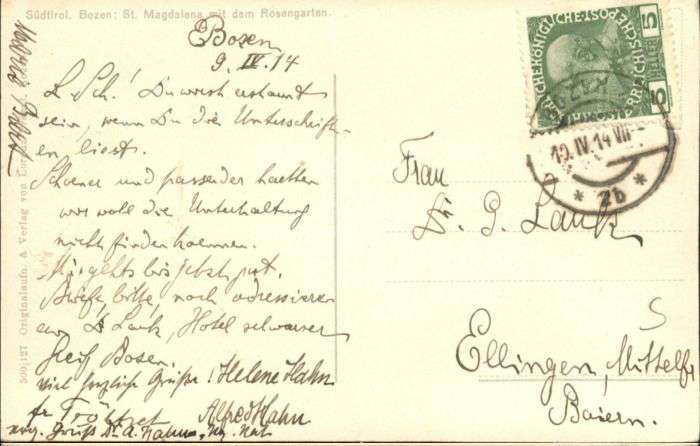 Südtirol. Bozen: St. Magdalena mit dem Rosengarten.
Bozen
9. IV. 14
L. Sch! Du wirst erstaunt
sein, wenn Du die Unterschrift-
en liest.
Schoener und passender haetten
wir wohl die Unterhaltung
nicht finden koennen.
Mir gehts bis jetzt gut.
Briefe, bitte, noch adressieren
an Dr Lautz, Hotel schwarzer
Greif Bozen.
viel herzliche Grüße! Helene Hahn
Alfred Hahn
Gruß Dr. A. Hahn
500,127 Originalaufn. & Verlag von
KAISERLICHE KÖNIGLICHE ÖSTERREICHISCHE POST
5 HELLER 5
BOZEN
10. IV. 14 VII
* 2b *
Frau
Dr. G. Lautz
Ellingen, Mittelfr
Baiern.